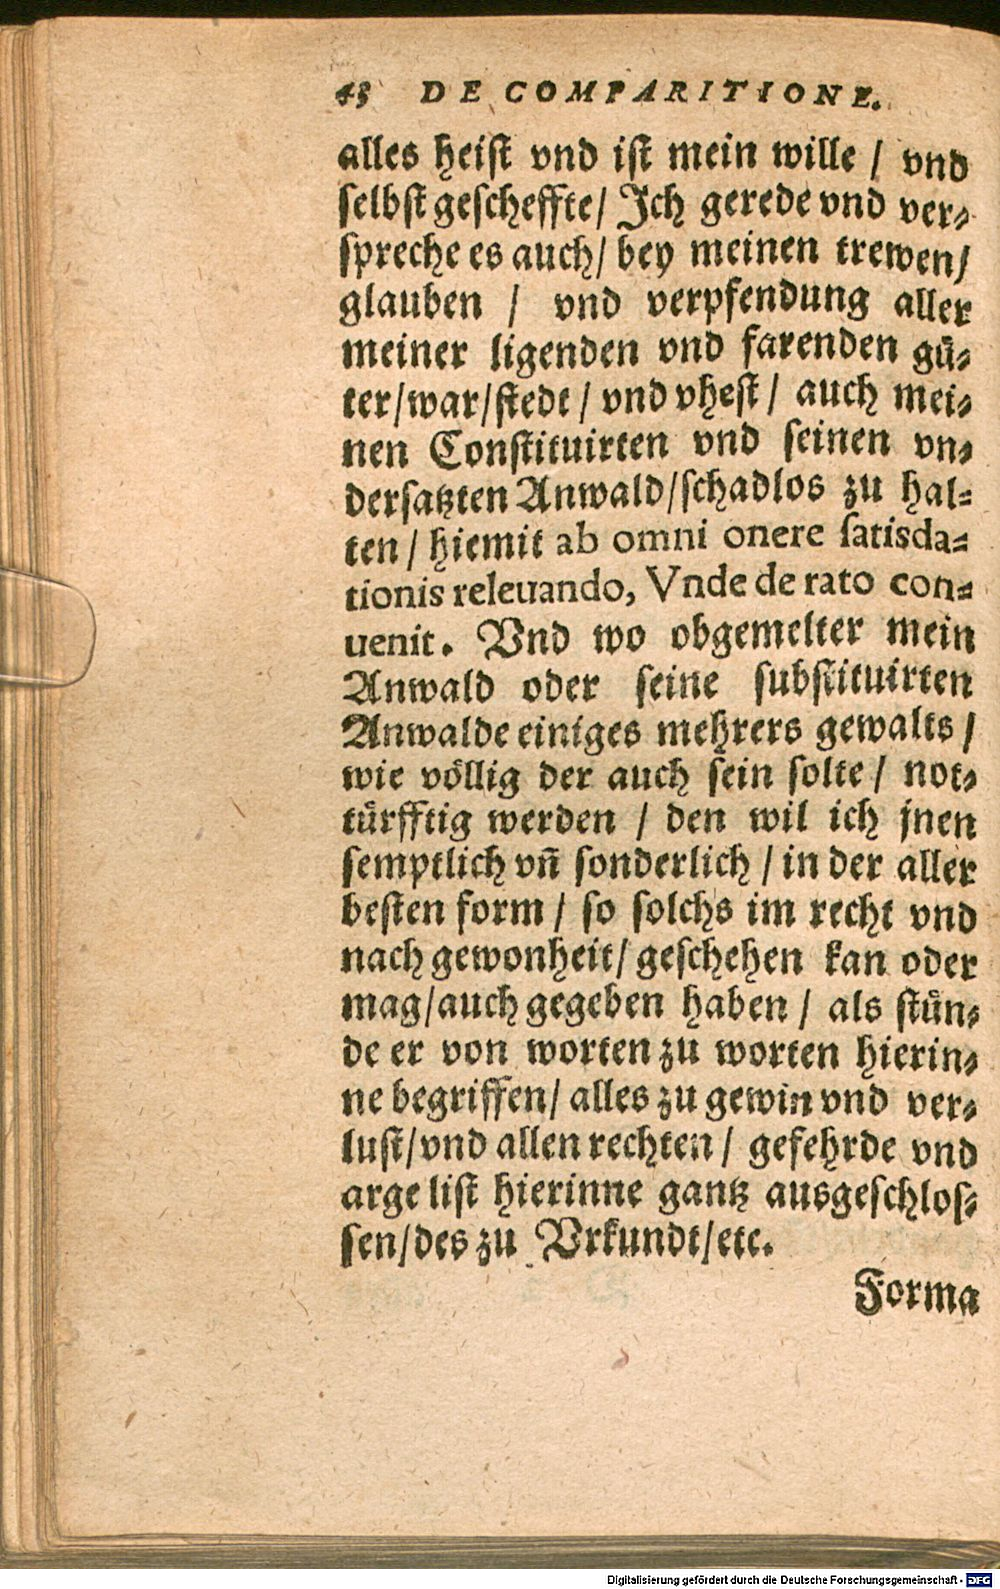 43 DE COMPARITIONE.
alles heist vnd ist mein wille / vnd
selbst gescheffte / Ich gerede vnd ver-
spreche es auch / bey meinen trewen /
glauben / vnd verpfendung aller
meiner ligenden vnd farenden gü-
ter / war / stedt / vnd vhest / auch mei-
nen Constituirten vnd seinen vn-
dersatzten Anwald / schadlos zu hal-
ten / hiemit ab omni onere satisda-
tionis releuando, Vnde de rato con-
uenit. Vnd wo obgemelter mein
Anwald oder seine substituirten
Anwalde einiges mehrers gewalts /
wie völlig der auch sein solte / not-
türfftig werden / den wil ich jnen
semptlich vñ sonderlich / in der aller
besten form / so solchs im recht vnd
nach gewonheit / geschehen kan oder
mag / auch gegeben haben / als stün-
de er von worten zu worten hierin-
ne begriffen / alles zu gewin vnd ver-
lust / vnd allen rechten / gefehrde vnd
arge list hierinne gantz ausgeschlos-
sen / des zu Vrkundt / etc.
Forma
Digitalisierung gefördert durch die Deutsche Forschungsgemeinschaft - DFG